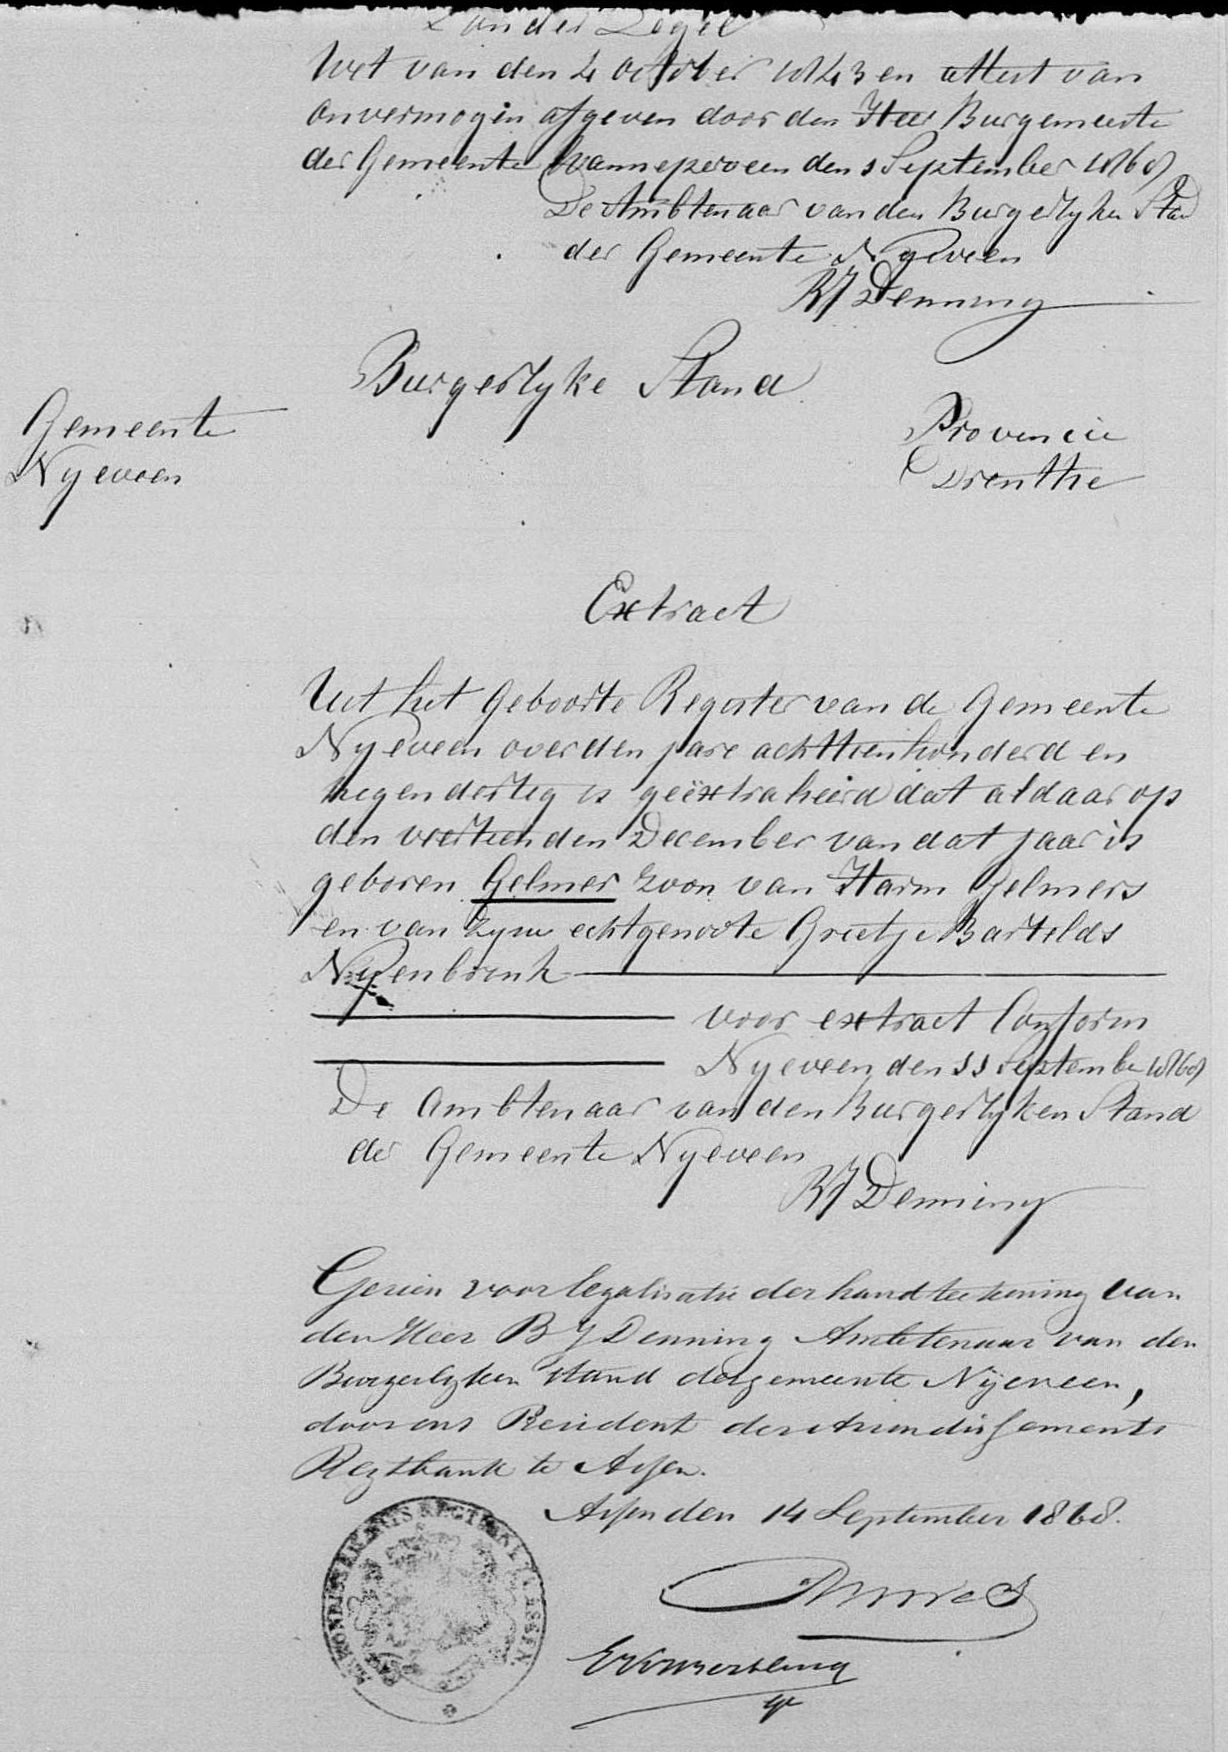 Zonder Zegel
Wet van den 4 October 1843 en attest van
onvermogen afgeven door den Heer Burgemeeste
der Gemeente Wanneperveen den 1 September 1868
De Ambtenaar van den Burgerlyken Stand
der Gemeente Nyeveen
BJ Denning
Burgerlyke Stand
Gemeente
Nyeveen
Provincie
Drenthe
Extract
Uit het Geboorte Register van de Gemeente
Nyeveen over den jare achttienhonderd en
negendertig is geëxtraheerd dat aldaar op
den veertienden December van dat jaar is
geboren Gelmer zoon van Harm Gelmers
en van zyne echtgenoote Grietje Bartelds
Nyenbrink
voor extract Conform
Nyeveen den 11 Septembe 1868
De Ambtenaar van den Burgerlyken Stand
der Gemeente Nyeveen
BJ Denning
Gezien voor legalisatie der handteekening van
den Heer B J Denning Ambtenaar van den
Burgerlyken stand der gemeente Nijeveen,
door ons President der Arrondissements
Regtbank te Assen.
Assen den 14 September 1868.
ARRONDISSEMENTS REGTBANK TE ASSEN